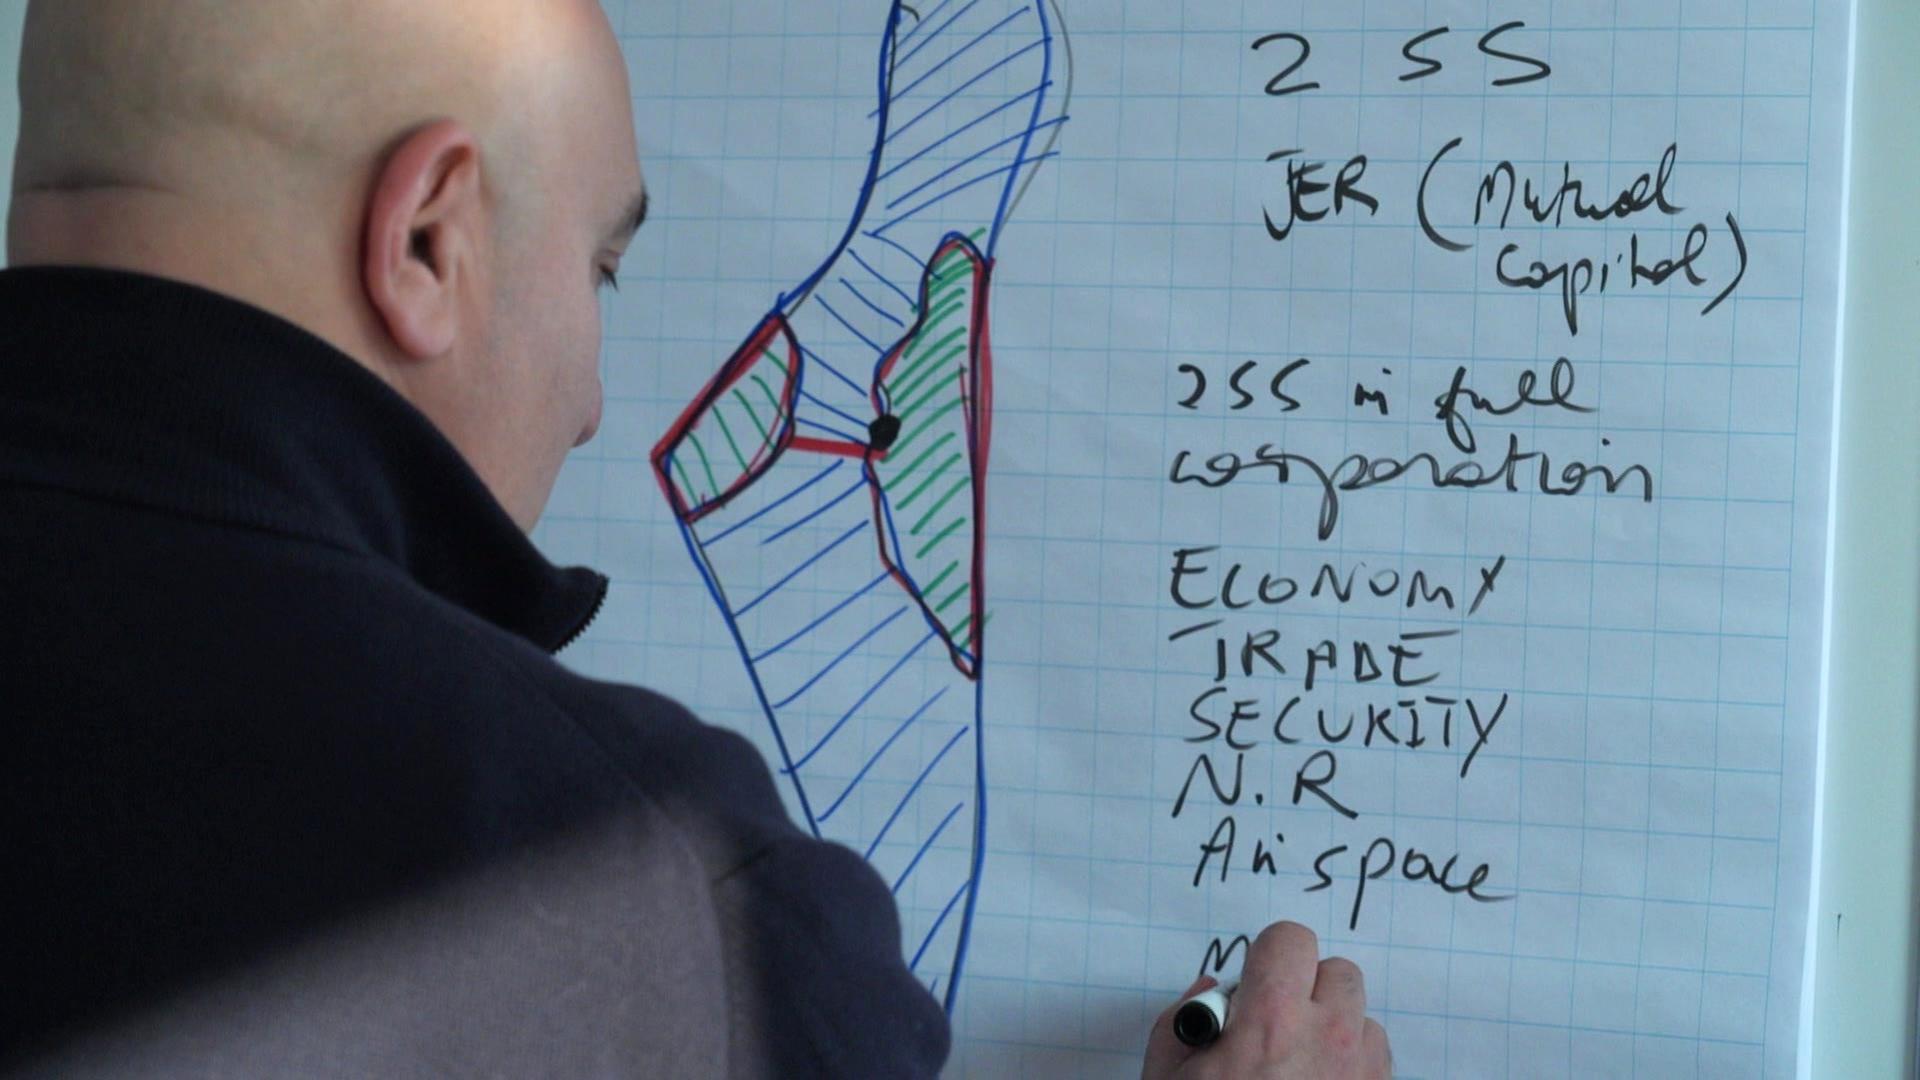 2 SS
JER (Mutual
capital)
2SS in full
corporation
ECONOMY
TRADE
SECURITY
N.R
Airspace
M